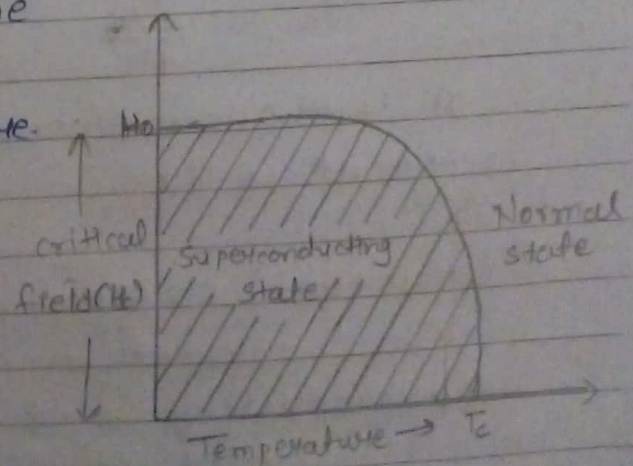 e
te.
Ho
critical
field(Hc)
Superconducting
state
Normal
state
Temperature → Tc